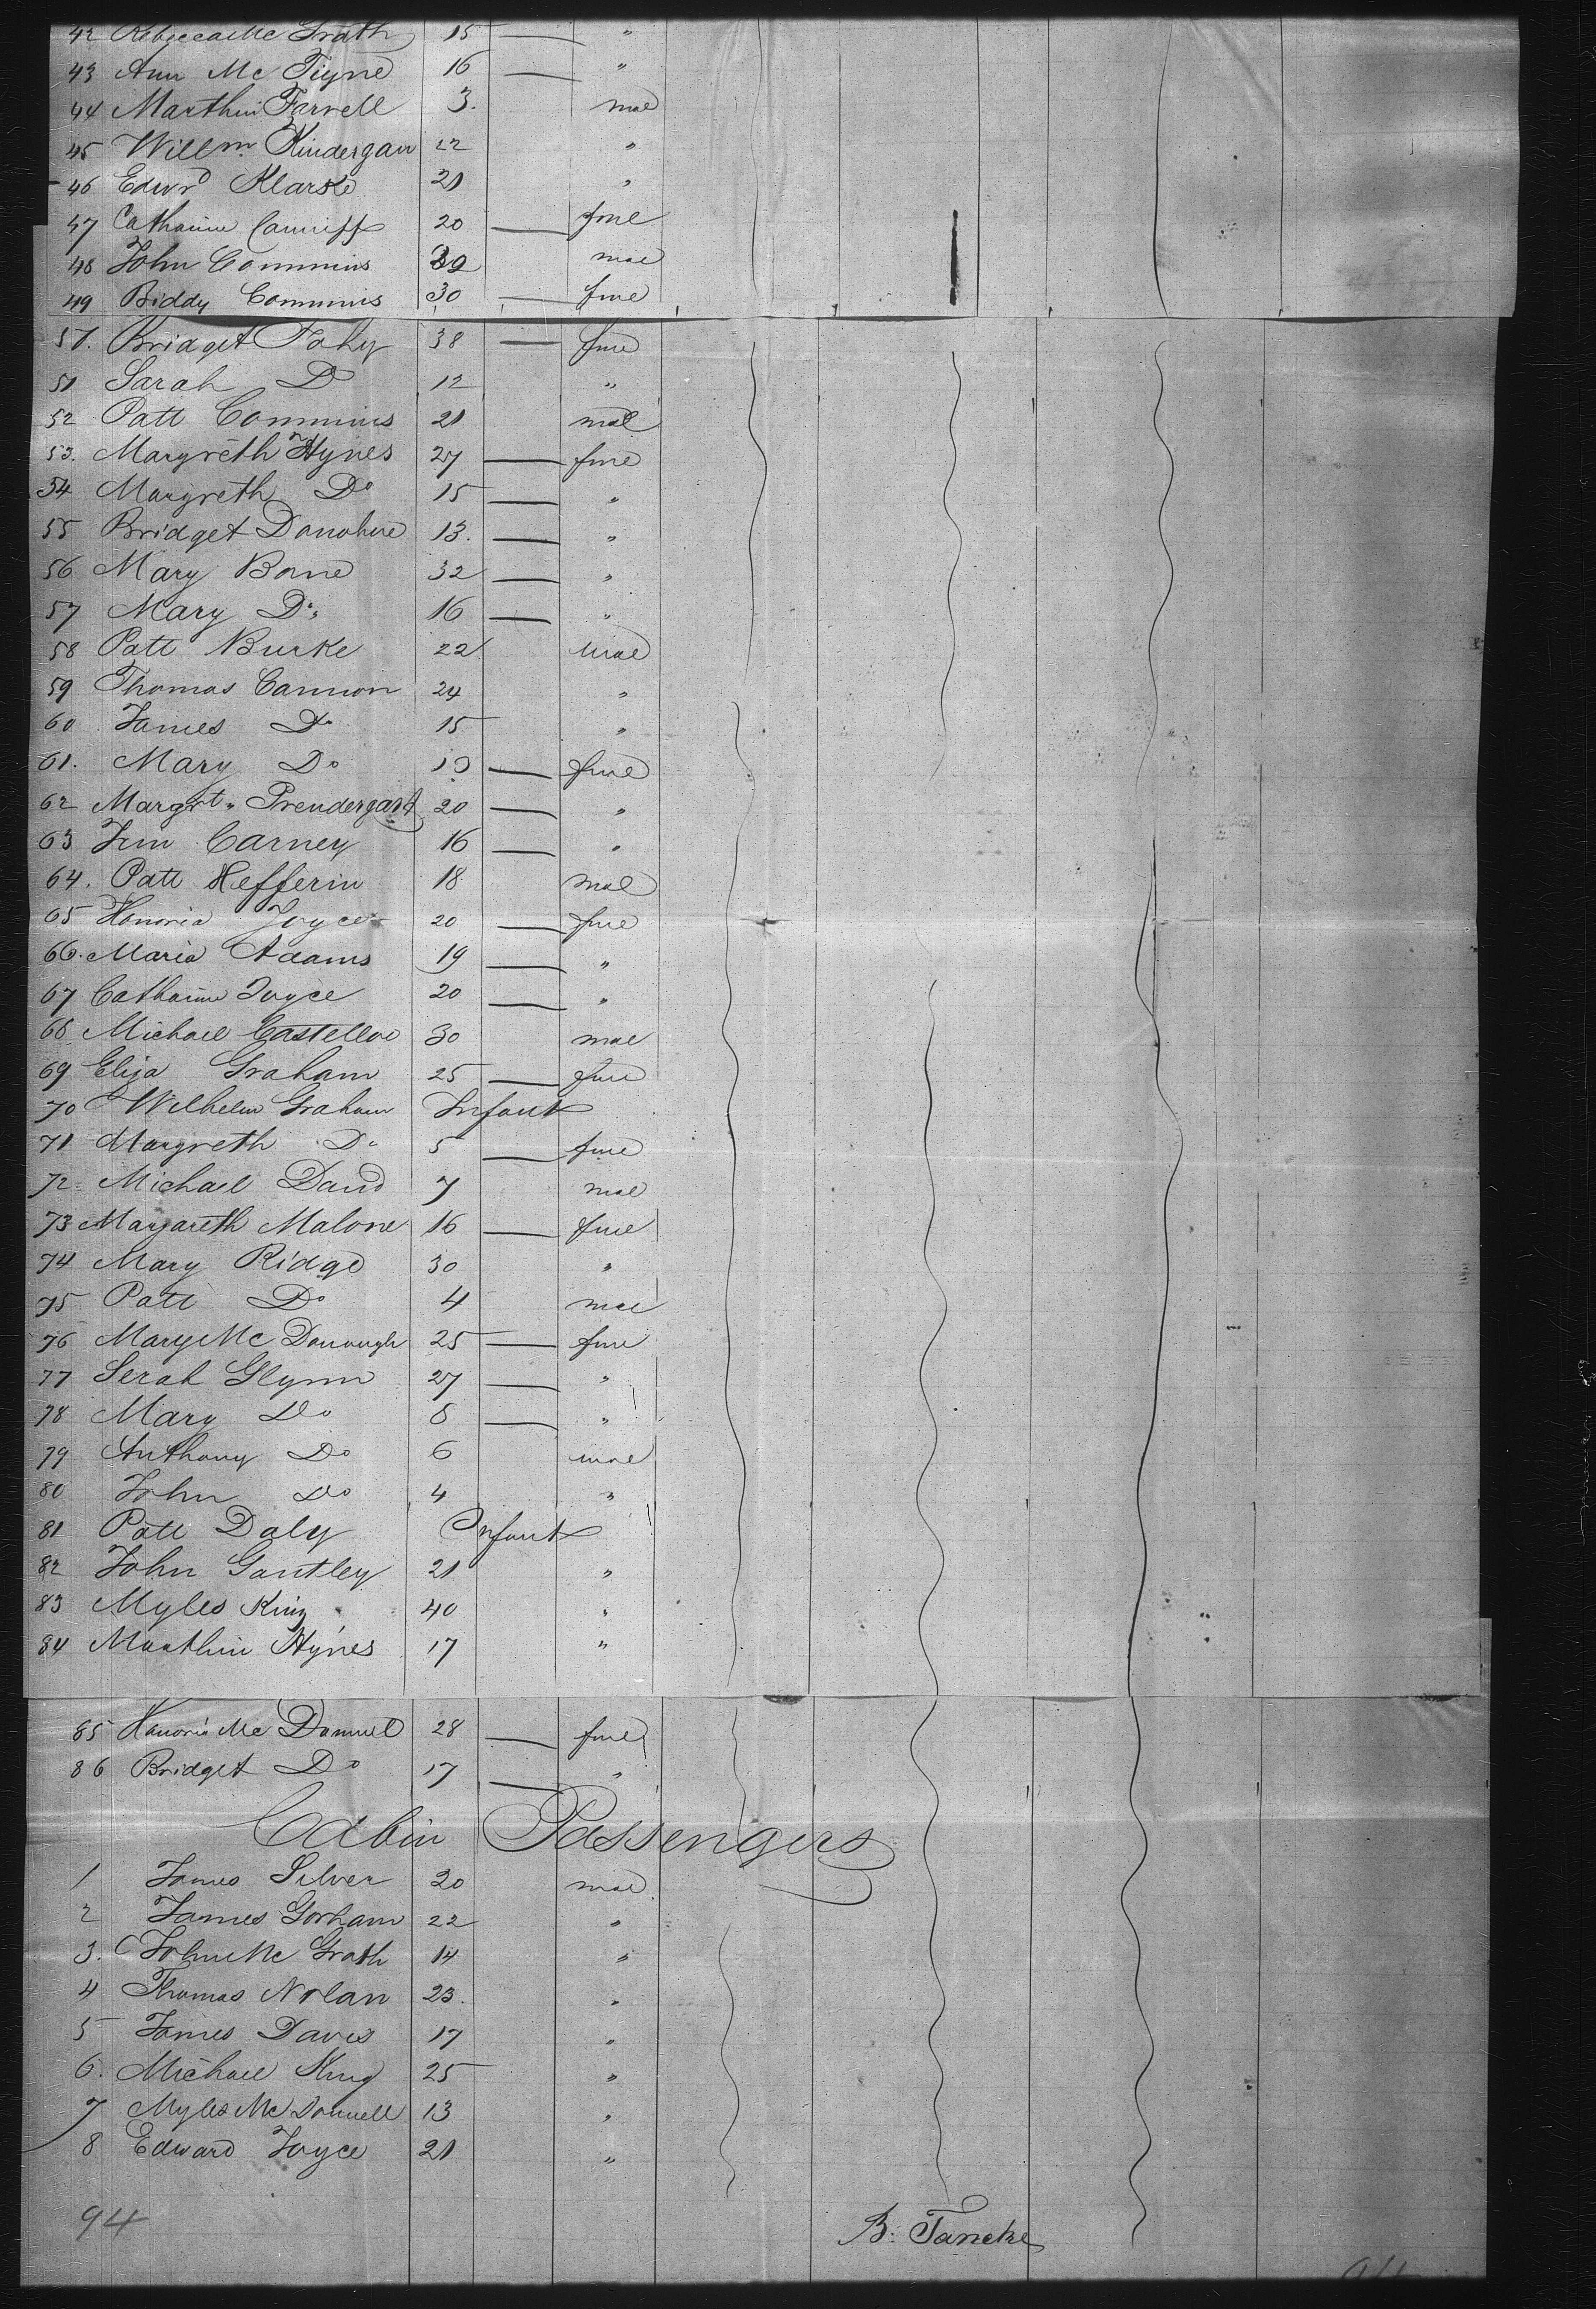 42 Rebecca Mc Grath 15 — "
43 Ann Mc Tigne 16 — "
44 Marthin Farrell 3. male
45 Willm. Kindergan 22 "
46 Edwd Klarke 21 "
47 Catharine Canniff 20 — fmle
48 John Commins 30 male
49 Biddy Commins 30 — fmle
57. Bridget Fahy 38 — fmle
51 Sarah Do 12 "
52 Patt Commins 21 male
53. Margreth Hynes 27 — fmle
54 Margreth Do 15 — "
55 Bridget Donohue 13. — "
56 Mary Bone 32 — "
57 Mary Do 16 — "
58 Patt Burke 22 male
59 Thomas Cannon 24 "
60 James Do 15 "
61. Mary Do 19 — fmle
62 Margrt. Prendergast 20 — "
63 Jim Carney 16 — "
64. Patt Hefferin 18 male
65 Honoria Joyce 20 — fmle
66. Maria Adams 19 — "
67 Catharine Joyce 20 — "
68 Michael Castelloe 30 male
69 Eliza Graham 25 — fmle
70 Wilhelm Graham Infant
71 Margreth Do 5 — fmle
72 Michael Dand 7 male
73 Margareth Malone 16 — fmle
74 Mary Ridge 30 "
75 Patt Do 4 male
76 Mary Mc Donough 25 — fmle
77 Serah Glynn 27 — "
78 Mary Do 8 — "
79 Anthony Do 6 male
80 John Do 4 "
81 Patt Daly Infant
82 John Gantley 21 "
83 Myles King 40 "
84 Marthin Hynes 17 "
85 Honoria Mc Donnel 28 — fmle
86 Bridget Do 17 — "
Cabin Passengers
1 James Silver 20 male
2 James Gorham 22 "
3. John Mc Grath 14 "
4 Thomas Nolan 23. "
5 James Davis 17 "
6. Michael King 25 "
7 Myles Mc Donnell 13 "
8 Edward Joyce 21 "
94
B. Tancke